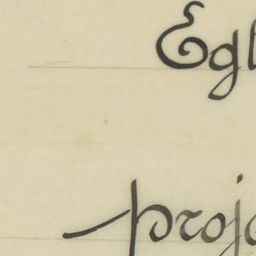 Egl
proj